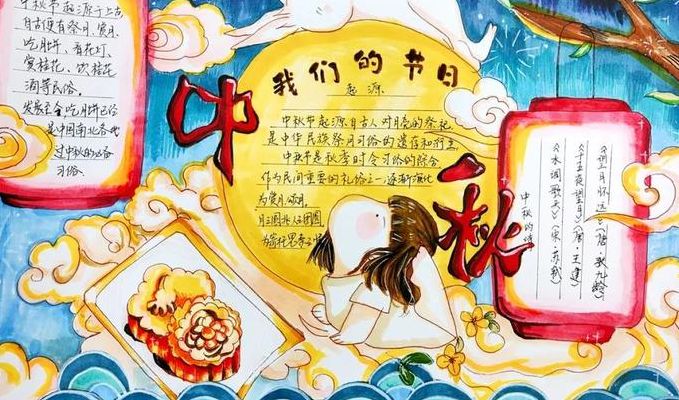 中秋节起源于上古
自古便有祭月、赏月、
吃月饼、看花灯、
赏桂花、饮桂花
酒等民俗。
发展至今吃月饼已经
是中国南北各地
过中秋的必备
习俗
中秋
我们的节日
起源
中秋节起源自古人对月亮的祭祀
是中华民族祭月习俗的遗存和衍生
中秋节是秋季时令习俗的综合
作为民间重要的礼俗之一,逐渐演化
为赏月、颂月
月圆兆人团圆
为寄托思
《望月怀远》(唐·张九龄)
《十五夜望月》(唐·王建)
《水调歌头》(宋·苏轼)
中秋的诗